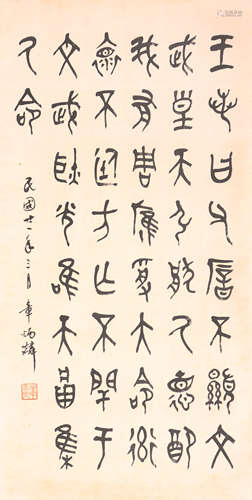 王若曰父㕻不顯文
武皇天弘猒氒德配
我有周膺受大命衒
褱不廷方亡不閈于
文武耿光唯天𤖕集
氒命
民國廿一年三月 章炳麟